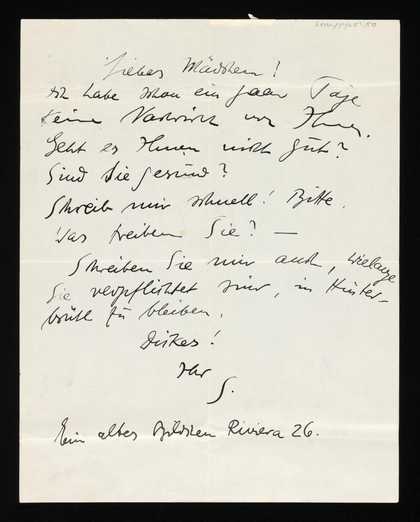 Liebes Mädchen!
Ich habe schon ein paar Tage
keine Nachricht von Ihnen.
Geht es Ihnen nicht gut?
Sind Sie gesund?
Schreib mir schnell! Bitte.
Was treiben Sie? —
Schreiben Sie mir auch, wielange
Sie verpflichtet sind, in Hinter-
brühl zu bleiben.
Ihr
S.
Ein altes Bildchen Riviera 26.